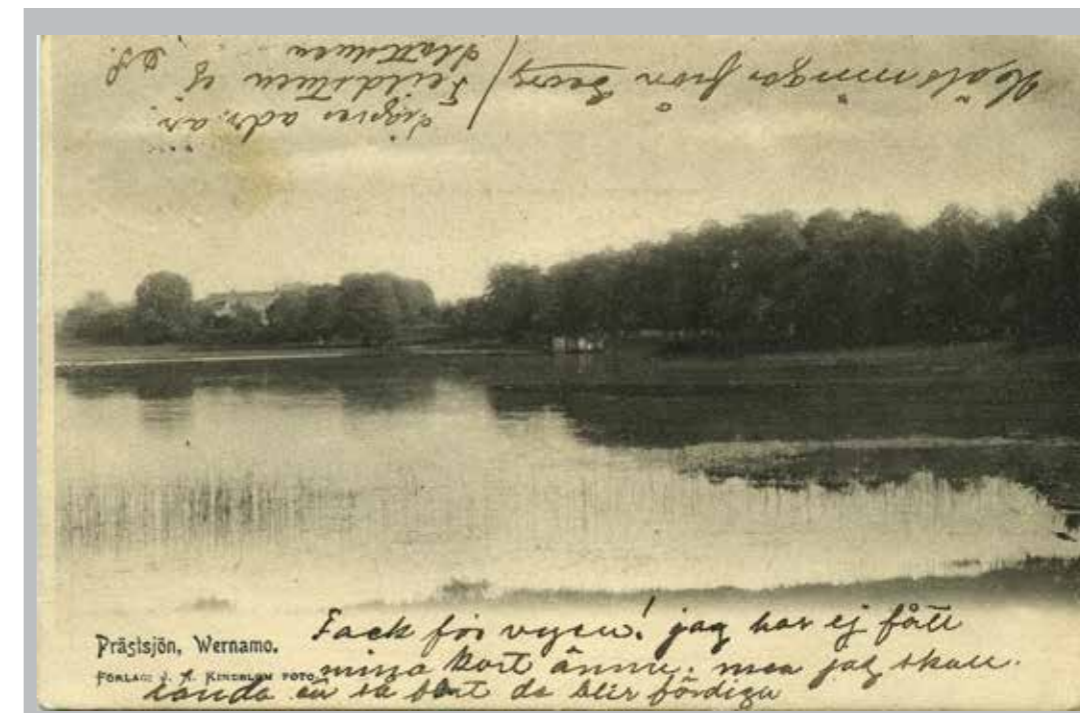 Hälsningar från Georg
adr. är.
ej
Prästsjön, Wernamo.
FÖRLAG: J. A. KINDBLOM FOTO.
Tack för vyen! jag har ej fått
mina kort ännu. men jag skall
sända en så fort de blir färdiga